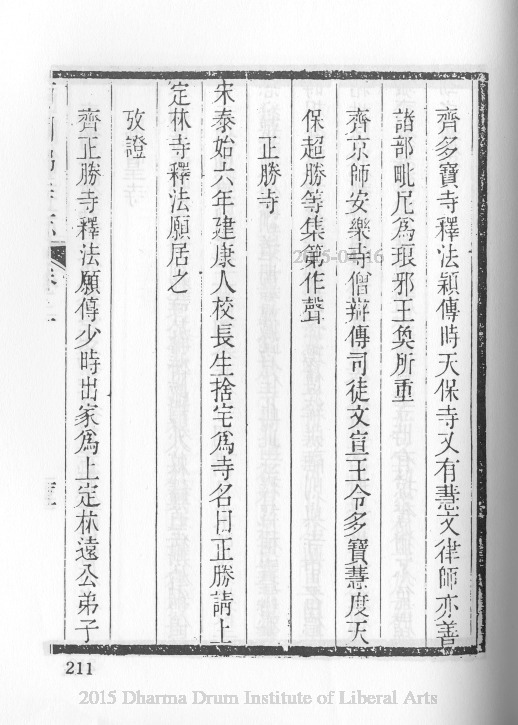 齊多寶寺釋法穎傳時天保寺又有慧文律師亦善
諸部毗尼爲瑯邪王奐所重
齊京師安樂寺僧辯傳司徒文宣王令多寶慧度天
保超勝等集第作聲
正勝寺
宋泰始六年建康人校長生捨宅爲寺名曰正勝請上
定林寺釋法願居之
攷證
齊正勝寺釋法願傳少時出家爲上定林遠公弟子
211
2015 Dharma Drum Institute of Liberal Arts